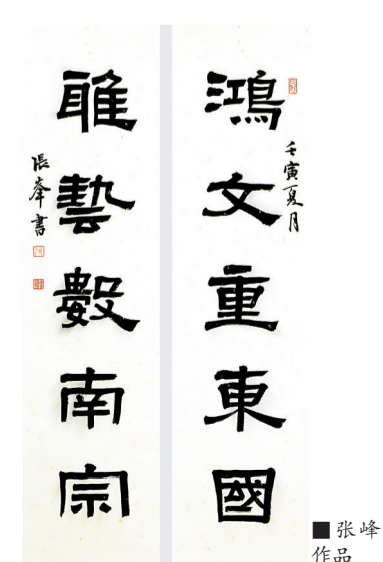 鴻文重東國
壬寅夏月
雅藝數南宗
張峯書
■张峰
作品